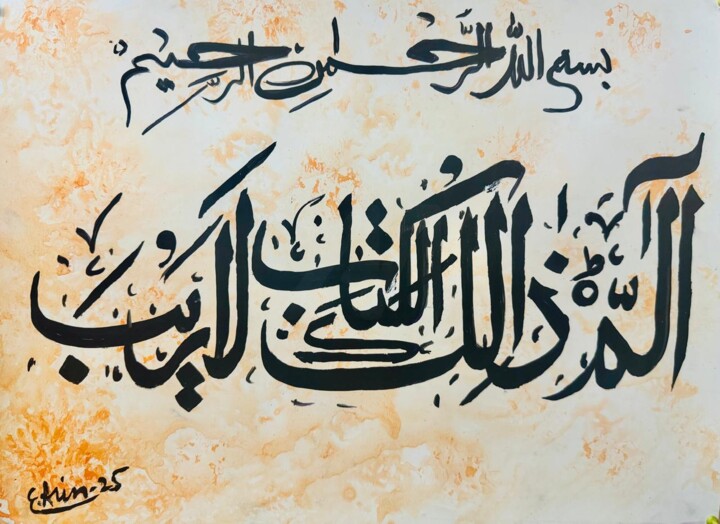 بسم الله الرحمن الرحيم
الم ذالك الكتاب لا ريب
E.Arin-25